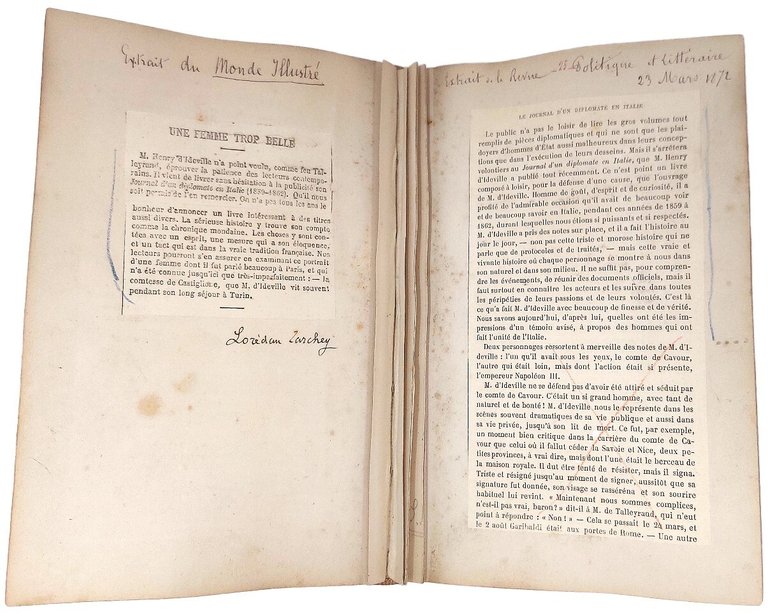 Extrait du Monde Illustré
UNE FEMME TROP BELLE
M. Henry d'Ideville n'a point voulu, comme feu Tal-
leyrand, éprouver la patience des lecteurs contempo-
rains. Il vient de livrer sans hésitation à la publicité son
Journal d'un diplomate en Italie (1859-1862). Qu'il nous
soit permis de l'en remercier. On n'a pas tous les ans le
bonheur d'annoncer un livre intéressant à des titres
aussi divers. La sérieuse histoire y trouve son compte
comme la chronique mondaine. Les choses y sont con-
tées avec un esprit, une mesure qui a son éloquence,
et un tact qui est dans la vraie tradition française. Nos
lecteurs pourront s'en assurer en examinant ce portrait
d'une femme dont il fut parlé beaucoup à Paris, et qui
n'a été connue jusqu'ici que très-imparfaitement : — la
comtesse de Castiglione, que M. d'Ideville vit souvent
pendant son long séjour à Turin.
Lorédan Larchey
Extrait de la Revue Politique et littéraire
23 Mars 1872
LE JOURNAL D'UN DIPLOMATE EN ITALIE
Le public n'a pas le loisir de lire les gros volumes tout
remplis de pièces diplomatiques et qui ne sont que les plai-
doyers d'hommes d'État aussi malheureux dans leurs concep-
tions que dans l'exécution de leurs desseins. Mais il s'arrêtera
volontiers au Journal d'un diplomate en Italie, que M. Henry
d'Ideville a publié tout récemment. Ce n'est point un livre
composé à loisir, pour la défense d'une cause, que l'ouvrage
de M. d'Ideville. Homme de goût, d'esprit et de curiosité, il a
profité de l'admirable occasion qu'il avait de beaucoup voir
et de beaucoup savoir en Italie, pendant ces années de 1859 à
1862, durant lesquelles nous étions si puissants et si respectés.
M. d'Ideville a pris des notes sur place, et il a fait l'histoire au
jour le jour, — non pas cette triste et morose histoire qui ne
parle que de protocoles et de traités, — mais cette vraie et
vivante histoire où chaque personnage se montre à nous dans
son naturel et dans son milieu. Il ne suffit pas, pour compren-
dre les événements, de réunir des documents officiels, mais il
faut surtout en connaître les acteurs et les suivre dans toutes
les péripéties de leurs passions et de leurs volontés. C'est là
ce qu'a fait M. d'Ideville avec beaucoup de finesse et de vérité.
Nous savons aujourd'hui, d'après lui, quelles ont été les im-
pressions d'un témoin avisé, à propos des hommes qui ont
fait l'unité de l'Italie.
Deux personnages ressortent à merveille des notes de M. d'I-
deville : l'un qu'il avait sous les yeux, le comte de Cavour,
l'autre qui était loin, mais dont l'action était si présente,
l'empereur Napoléon III.
M. d'Ideville ne se défend pas d'avoir été attiré et séduit par
le comte de Cavour. C'était un si grand homme, avec tant de
naturel et de bonté ! M. d'Ideville nous le représente dans les
scènes souvent dramatiques de sa vie publique et aussi dans
sa vie privée, jusqu'à son lit de mort. Ce fut, par exemple,
un moment bien critique dans la carrière du comte de Ca-
vour que celui où il fallut céder la Savoie et Nice, deux pe-
tites provinces, à vrai dire, mais dont l'une était le berceau de
la maison royale. Il dut être tenté de résister, mais il signa.
Triste et résigné jusqu'au moment de signer, aussitôt que sa
signature fut donnée, son visage se rasséréna et son sourire
habituel lui revint. « Maintenant nous sommes complices,
n'est-il pas vrai, baron? » dit-il à M. de Talleyrand, qui n'eut
point à répondre : « Non ! » — Cela se passait le 24 mars, et
le 2 août Garibaldi était aux portes de Rome. — Une autre